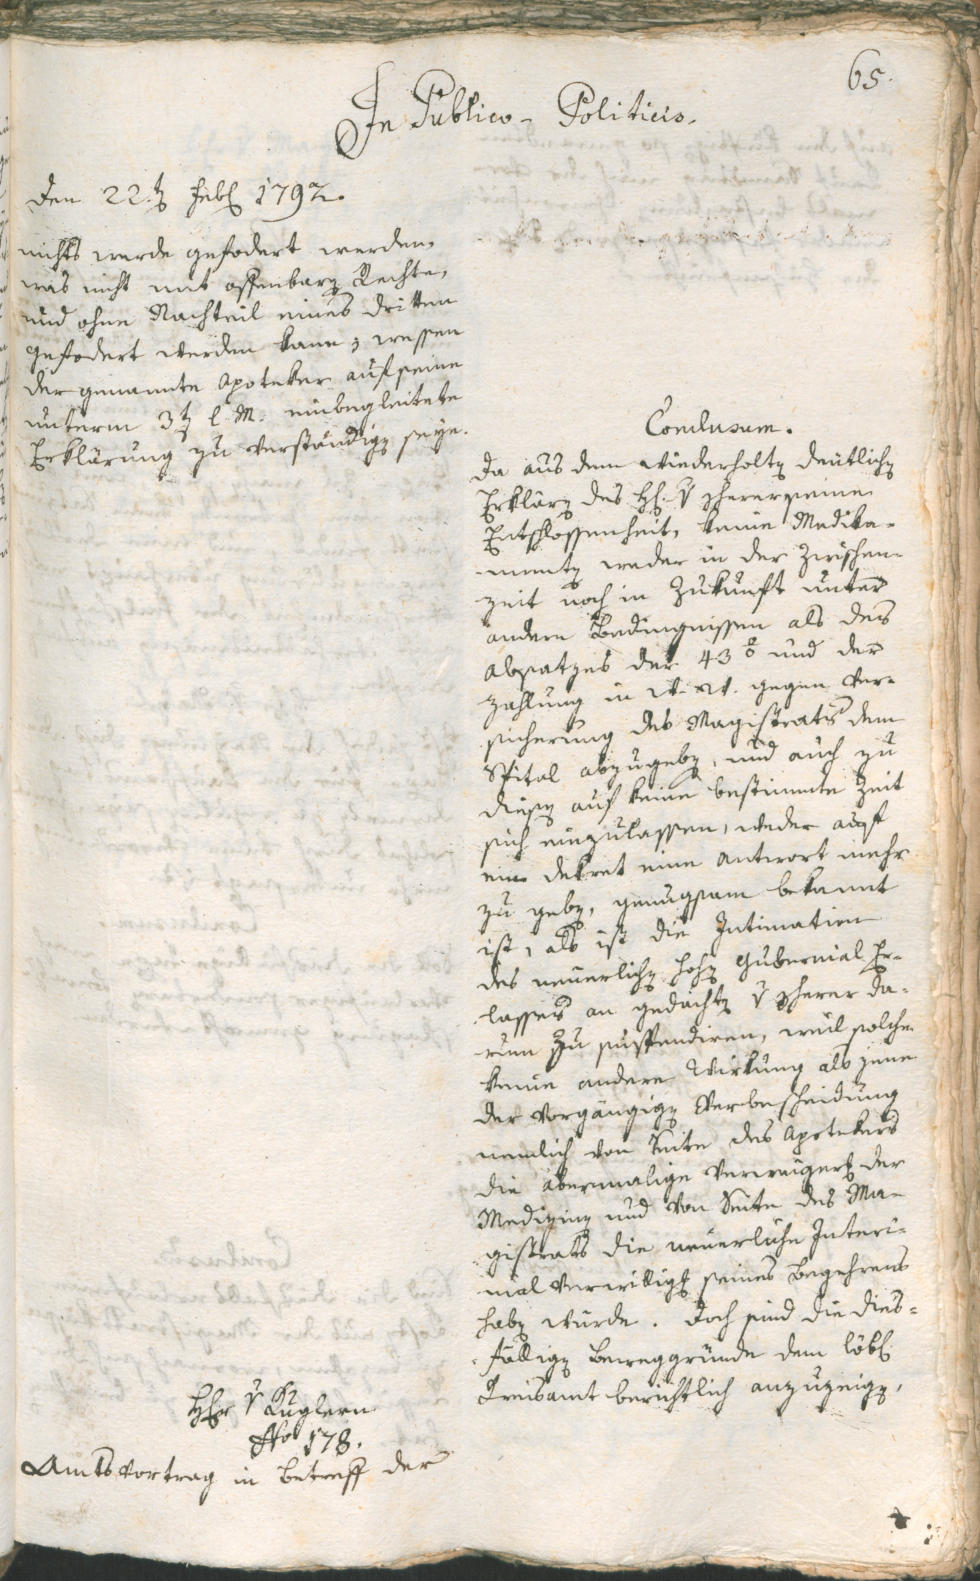 65.
In Publico-Politicis.
den 22.t Febr 1792.
nichts werde gefodert werden,
was nicht mit offenbarn Rechte,
und ohne Nachteil eines dritten
gefodert werden kann; wessen
der genannte Apoteker auf seine
unterm 3t l. M. einbegleitete
Erklärung zu verständign seye.
Hr v Kuglern
No 178.
Amtsvortrag in Betreff der
Conclusum.
Da aus dem wiederholtn deutlichn
Erklärn des H. v Scherer seine
Entschlossenheit, keine Medika-
mentn weder in der Zwischen-
zeit noch in Zukunft unter
andern Bedingnissen als des
Absatzes der 43 % und der
Zahlung in W. W. gegen Ver-
sicherung des Magistrats dem
Spital abzugebn, und auch zu
diesn auf keine bestimmte Zeit
sich einzulassen, weder auf
ein Dekret eine Antwort mehr
zu gebn, genugsam bekannt
ist, als ist die Intimation
des neuerlichn hohn Gubernial Er-
lasses an gedachtn v Scherer da-
rum zu suspendiren, weil solche
keine andere Wirkung als jene
der vorgängign Verbescheidung
nemlich von Seite des Apotekers
die abermalige Verweigerg der
Medizinn und von Seite des Ma-
gistrats die neuerliche Interi-
mal Verwilligg seines Begehrens
habn würde. Doch sind die dies-
fälligen Beweggründe dem löbl
Kreisamt berichtlich anzuzeign,